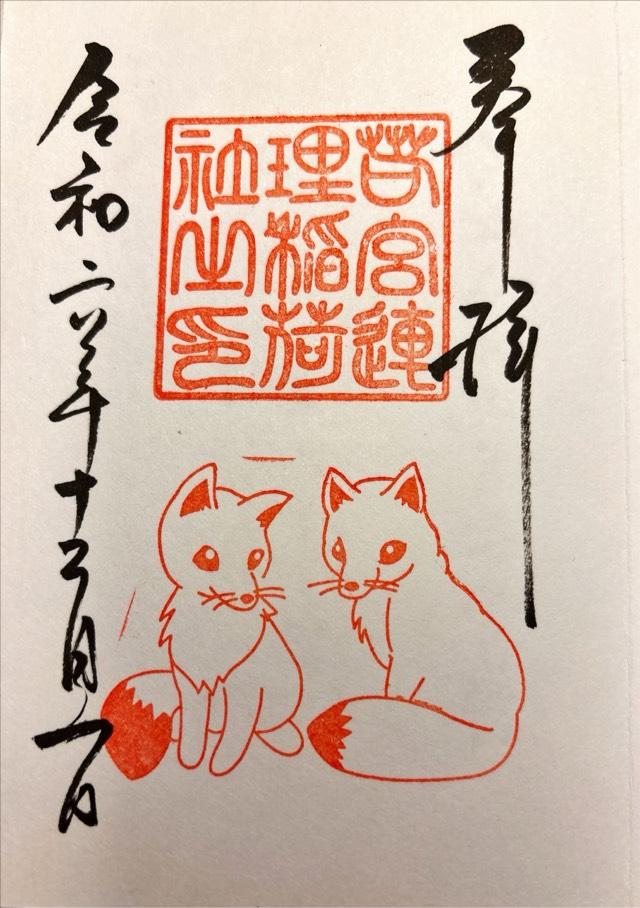 奉拝
若宮連
理稲荷
社之印
令和六年十二月一日